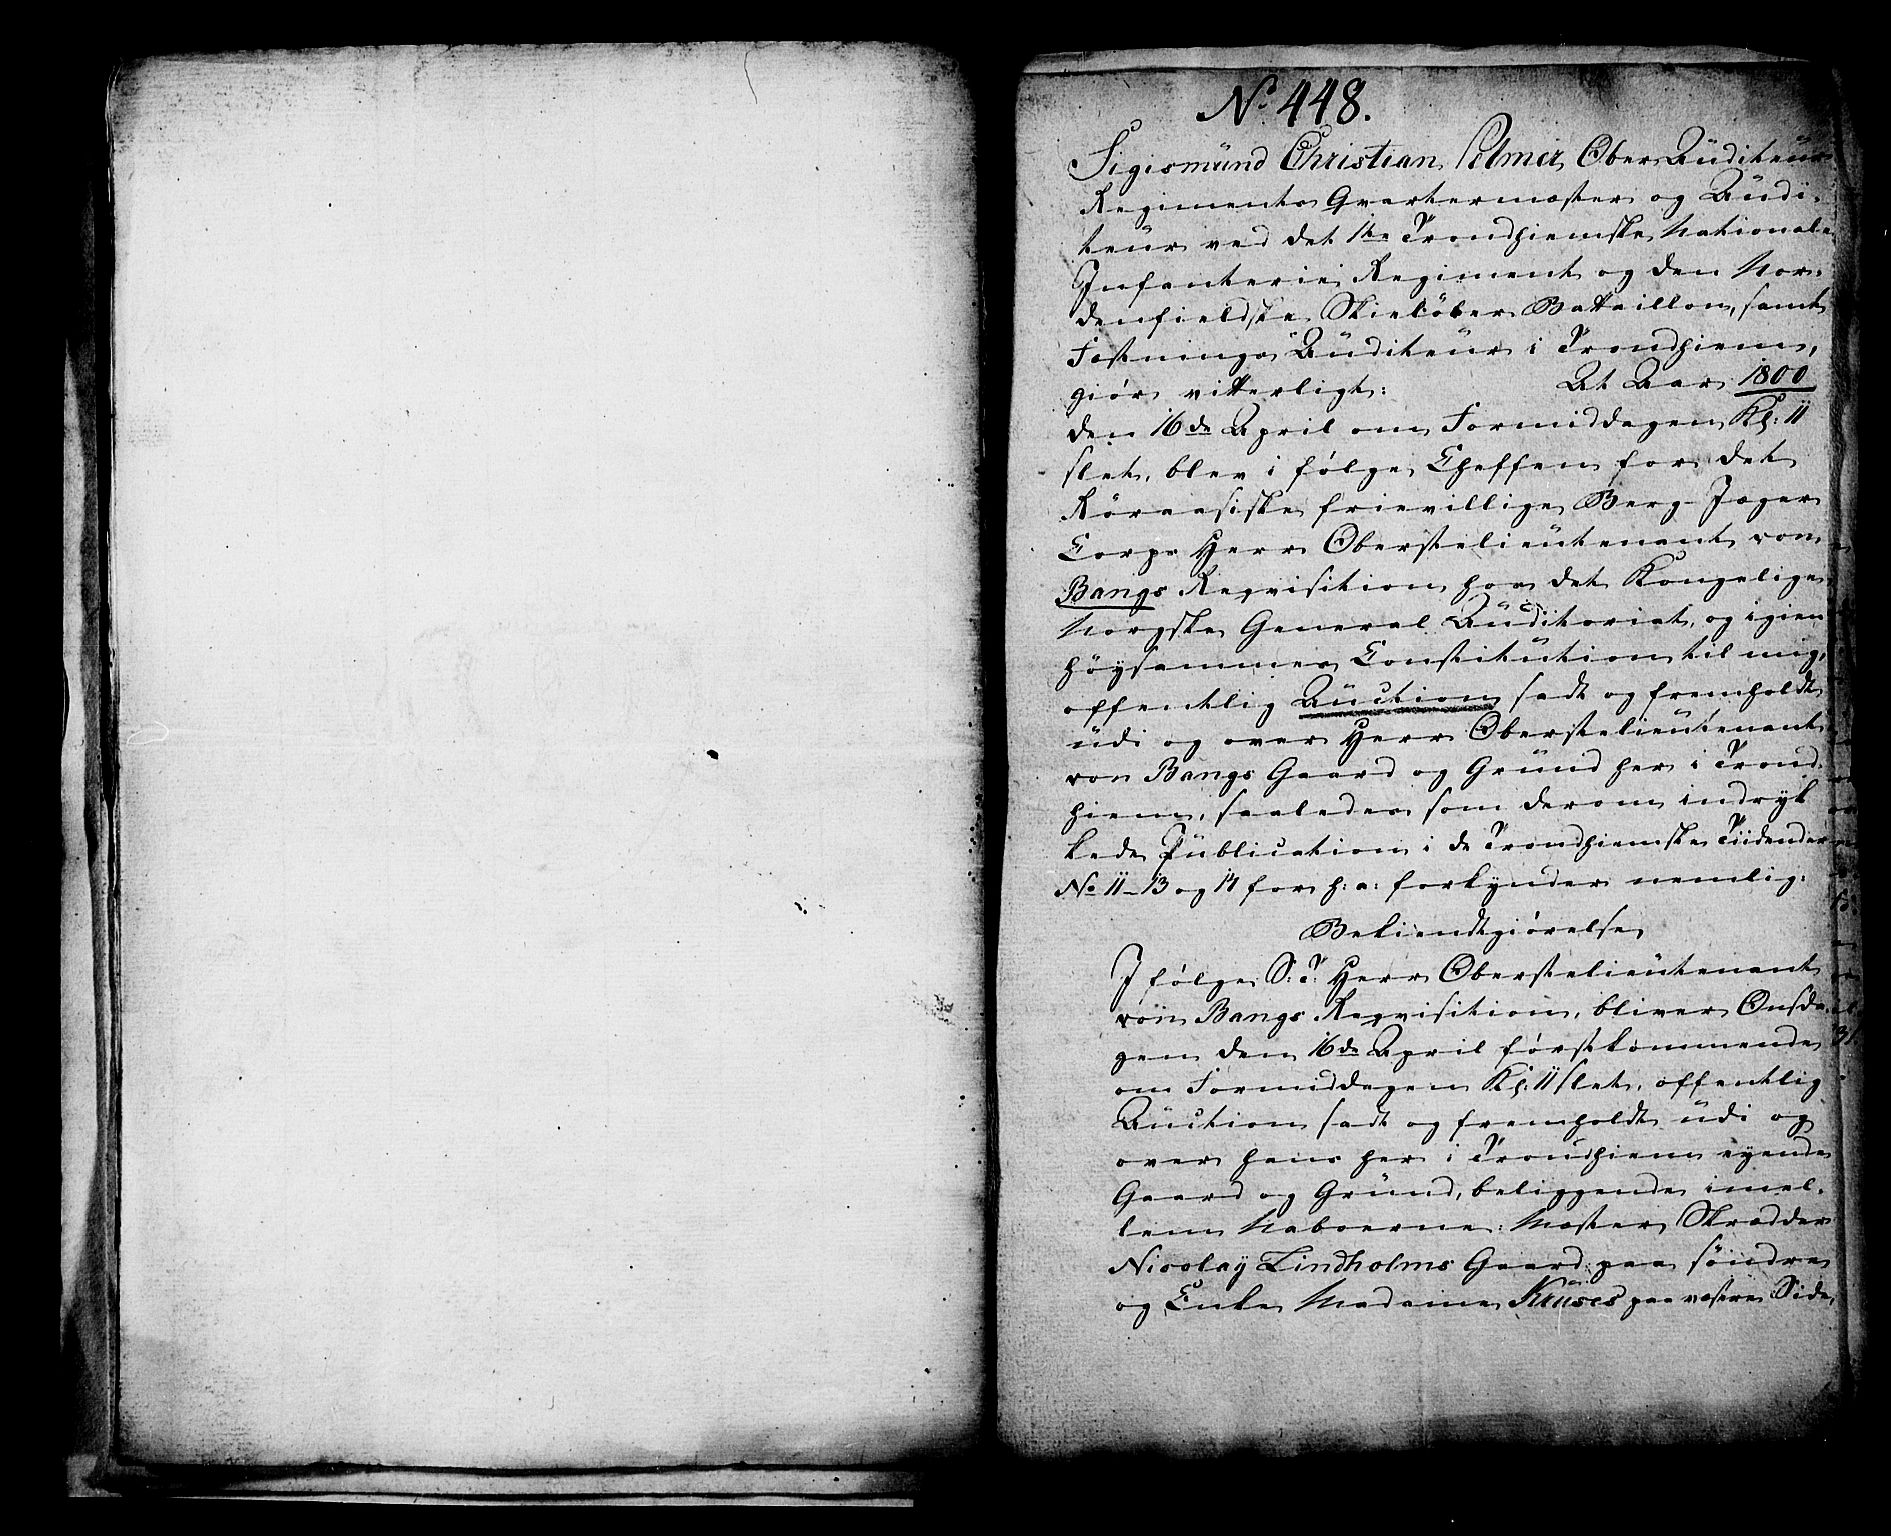 No 448.
Sigismünd Christian Pelmer, Ober Auditeur
Regiments Qvartermæster og Audi-
teur ved det 1te Trondhiemske Nationale
Infanterie Regiment og den Nor-
denfieldske Skieløber Battaillon, samt
Fæstnings Auditeur i Trondhiem,
giør vitterligt: At Aar 1800
den 16de April om Formiddagen Kl: 11
slet, blev i følge Cheffen for det
Röraasiske frievillige Berg-Jæger
Corps Herr Oberstelieutenant von
Bangs Reqvisition hos det Kongelige
Norgske General Auditoriat, og igien
höysammes Constitution til mig,
offentlig Auction sadt og fremholdt
udi og over Herr Oberstelieutenant
von Bangs Gaard og Grund her i Trond-
hiem, saaledes som derom indryk
kede Publication i de Trondhiemske Tiidender
No 11-13 og 14 for h: a: forkynder nemlig:
Bekiendtgiørelse
I følge S: T: Herr Oberstelieutenant
von Bangs Reqvisition, bliver Onsda-
gen den 16de April førstkommende
om Formiddagen Kl: 11 slet, offentlig
Auction sadt og fremholdt udi og
over hans her i Trondhiem eyende
Gaard og Grund, beliggende imel-
lem Naboerne: Mæster Skrædder
Nicolay Lindholms Gaard paa søndre
og Enke Madame Kruses paa væstre Side,